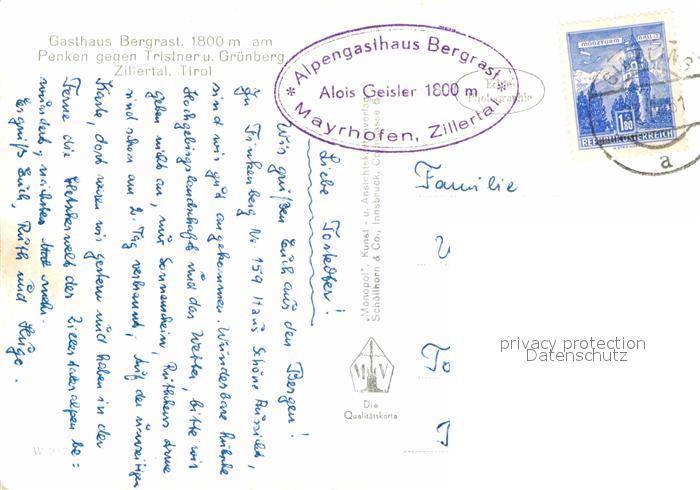 Gasthaus Bergrast, 1800 m am
Penken gegen Tristner u. Grünberg
Zillertal, Tirol
* Alpengasthaus Bergrast *
Alois Geisler 1800 m
Mayrhofen, Zillertal
Echte
Photographie
MÜNZTURM HALL I/T
1.80
REPUBLIK ÖSTERREICH
a
Liebe Tostedter!
Wir grüßen Euch aus den Bergen!
In Finkenberg Nr. 159 Haus Schöne Aussicht,
sind wir gut angekommen. Wunderbare
Hochgebirgslandschaft und das Wetter, bitte wir
geben nicht an, nur Sonnenschein, Arme
sind schon am 2. Tag verbrannt. Auf der
Karte, dort waren wir gestern und haben in der
Ferne die Gletscherwelt der Zillertaleralpen be=
wundert, nächstes Mal mehr.
Es grüßt Euch, Ruth und Hugo.
"Monopol", Kunst- u. Ansichtskartenverlag
Schöllhorn & Co., Innsbruck,
Familie
To
M V
Die
Qualitätskarte
privacy protection
Datenschutz